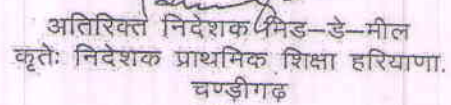 अतिरिक्त निदेशक मिड–डे–मील
कृतेः निदेशक प्राथमिक शिक्षा हरियाणा.
चण्ड़ीगढ़